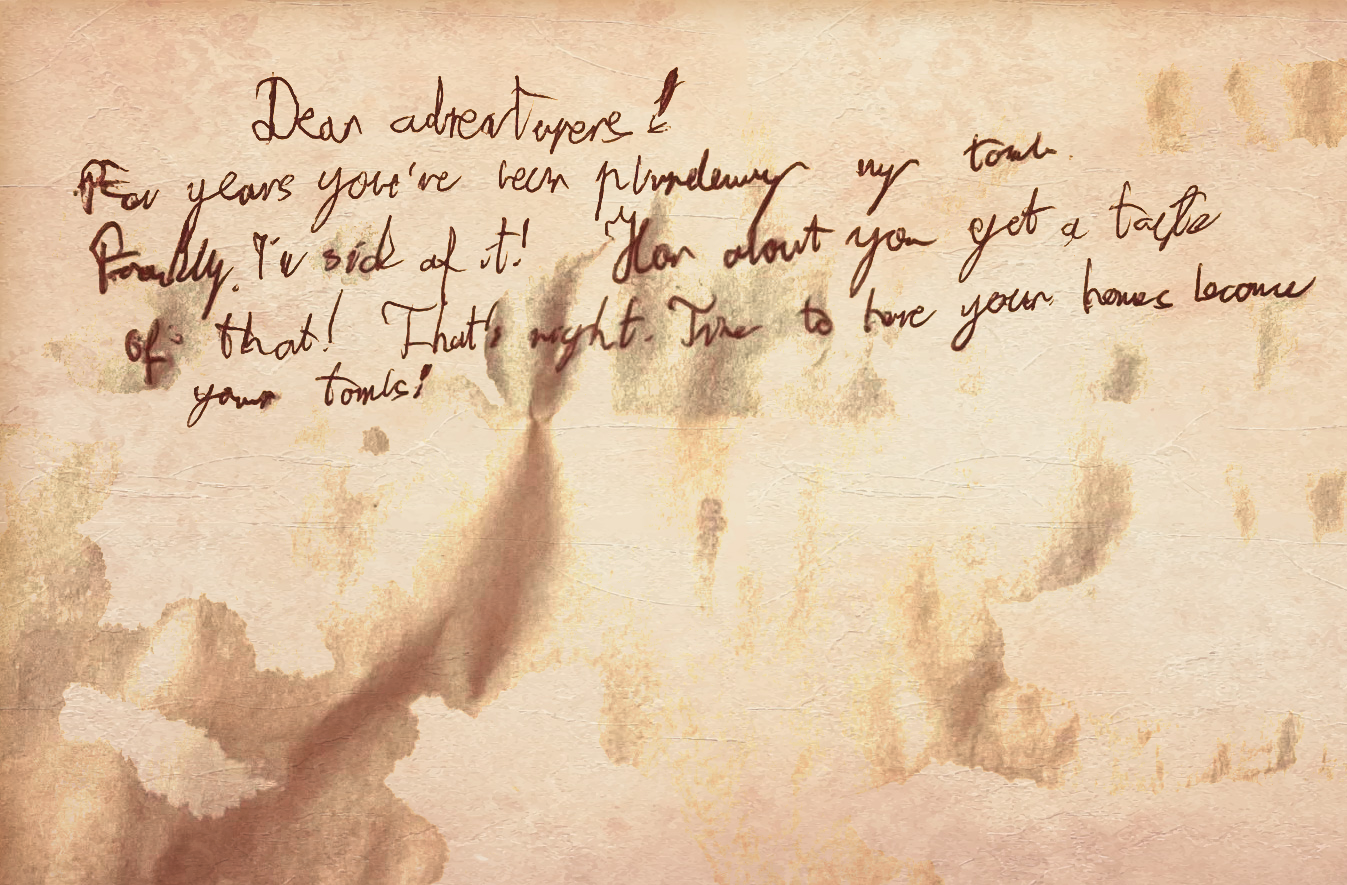 Dear adventurers!
For years you've been plundering my tomb.
Frankly, I'm sick of it! How about you get a taste
of that! That's right. Time to have your homes become
your tombs!